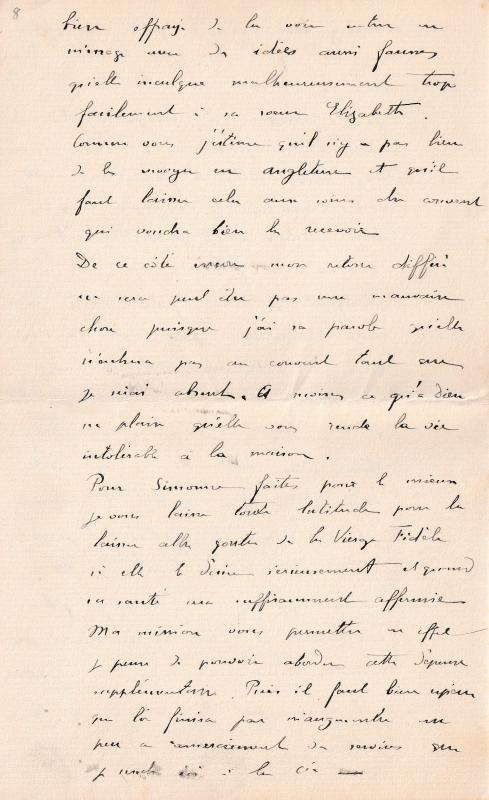 8
bien effrayé de la voir entrer en
ménage avec des idées aussi fausses
qu'elle inculque malheureusement trop
facilement à sa sœur Elizabeth.
Comme vous j'estime qu'il n'y a pas lieu
de la envoyer en angleterre et qu'il
faut laisser cela aux soins du couvent
qui voudra bien la recevoir
De ce côté mon retour différé
ne sera peut être pas une mauvaise
chose puisque j'ai sa parole qu'elle
n'entrera pas au couvent tant que
je serai absent. A moins ce qu'à Dieu
ne plaise qu'elle vous rende la vie
intolérable à la maison.
Pour Simonne faites pour le mieux
je vous laisse toute latitude pour la
laisser aller goûter de la Vierge Fidèle
si elle le désire sérieusement et quand
sa santé sera suffisamment affermie
Ma mission vous permettra en effet
je pense de pouvoir aborder cette dépense
supplémentaire. Puis il faut bien espérer
que l'on finira par m'augmenter un
peu en remerciement des services que
je rends ici à la Cie